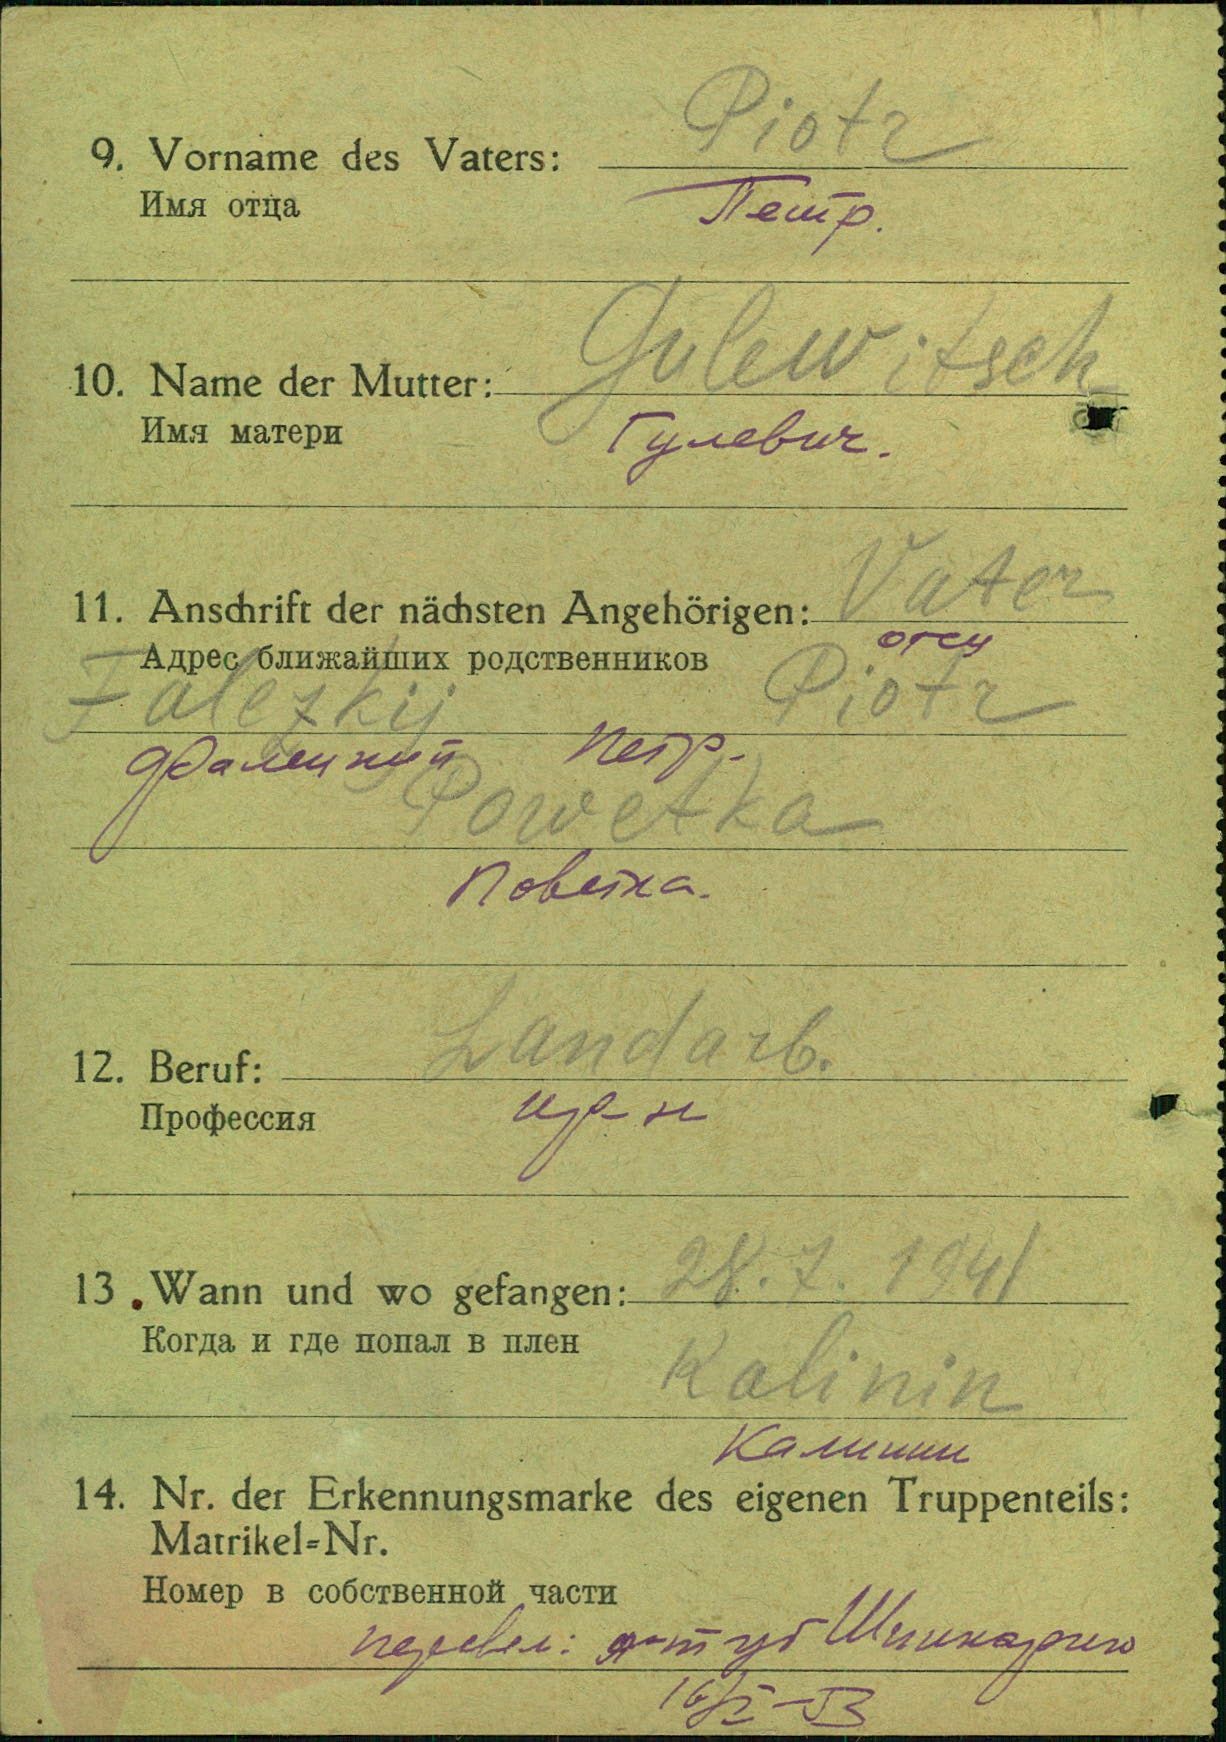 9. Vorname des Vaters: Piotr
Имя отца Петр.
10. Name der Mutter: Gulewitsch
Имя матери Гулевич.
11. Anschrift der nächsten Angehörigen: Vater
Адрес ближайших родственников отец
Falezkij Piotr
Фалецкий Петр.
Powetka
Поветка.
12. Beruf: Landarb.
Профессия
13. Wann und wo gefangen: 28.7.1941
Когда и где попал в плен Kalinin
Калинин
14. Nr. der Erkennungsmarke des eigenen Truppenteils:
Matrikel=Nr.
Номер в собственной части
перевел: